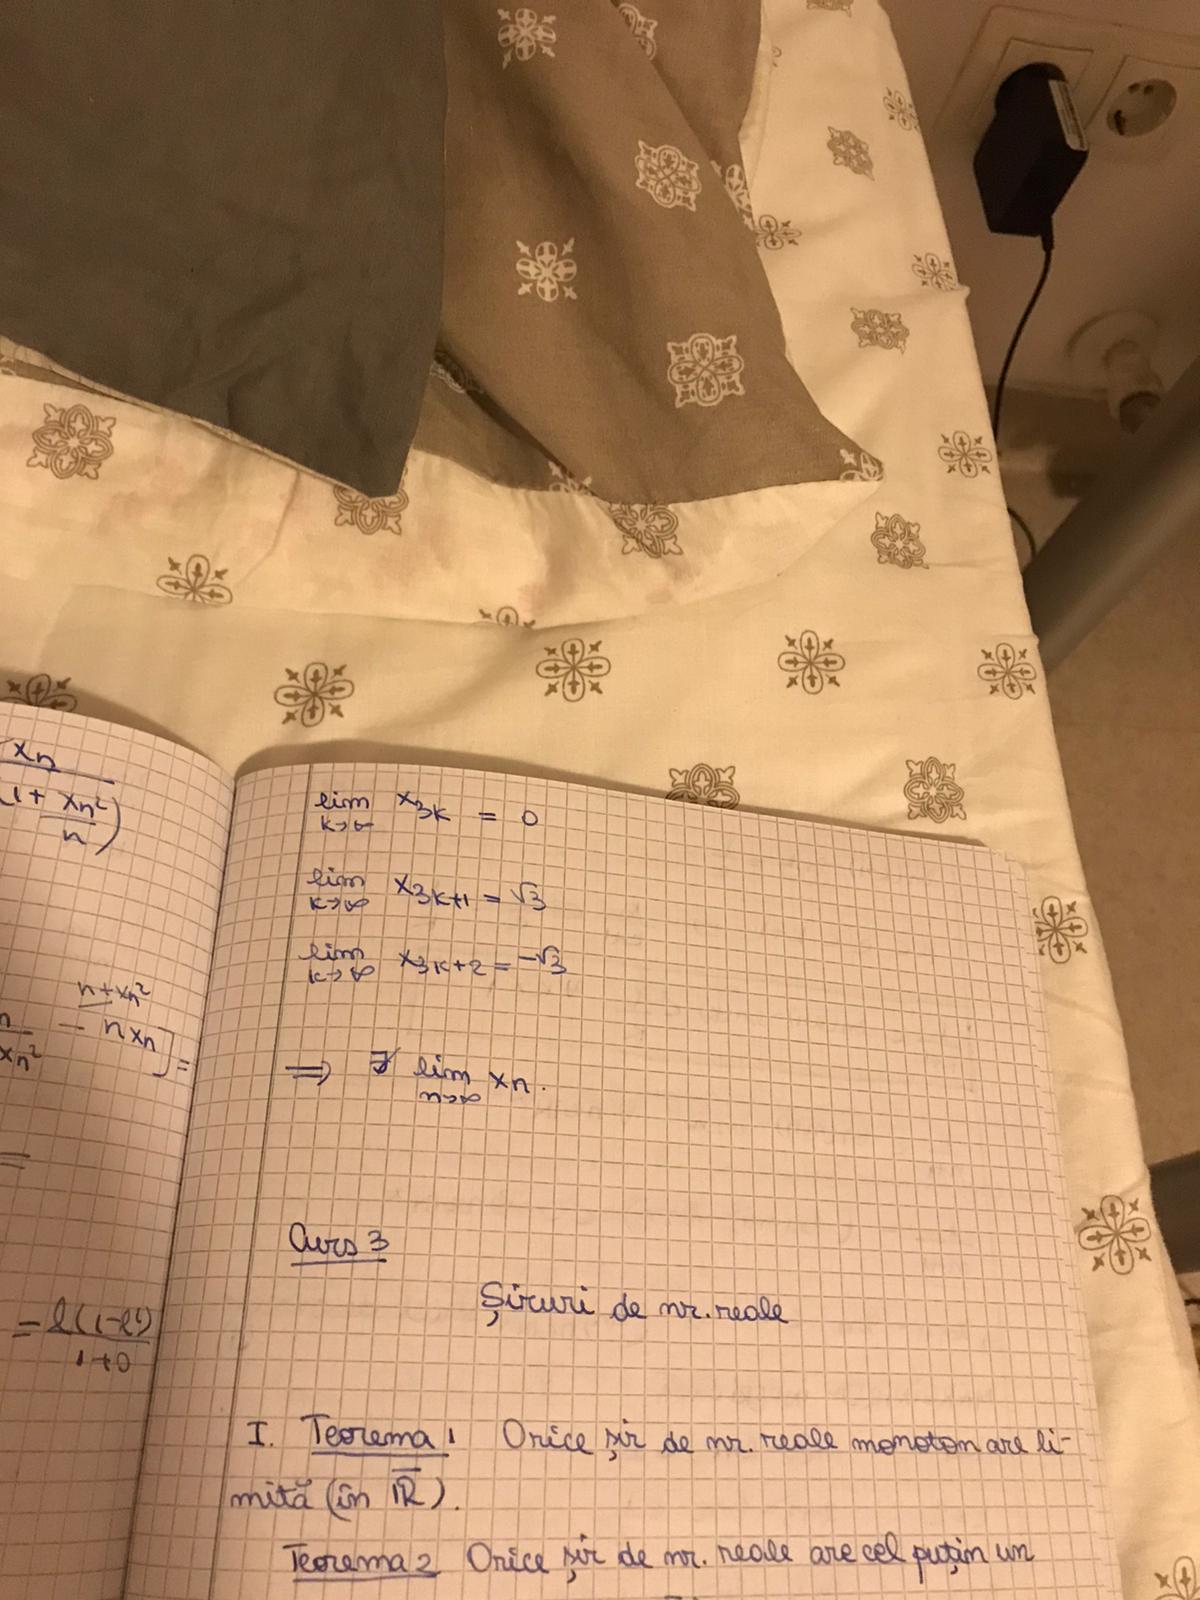 xn
(1 + xn²/n)
n + xn²
xn²
- n xn] =
=
= l(1-l²)/(1+0)
lim k→∞ x3k = 0
lim k→∞ x3k+1 = √3
lim k→∞ x3k+2 = -√3
⟹ ∄ lim n→∞ xn.
Curs 3
Șiruri de nr. reale
I. Teorema 1 Orice șir de nr. reale monoton are li-
mită (în R̅).
Teorema 2 Orice șir de nr. reale are cel puțin un